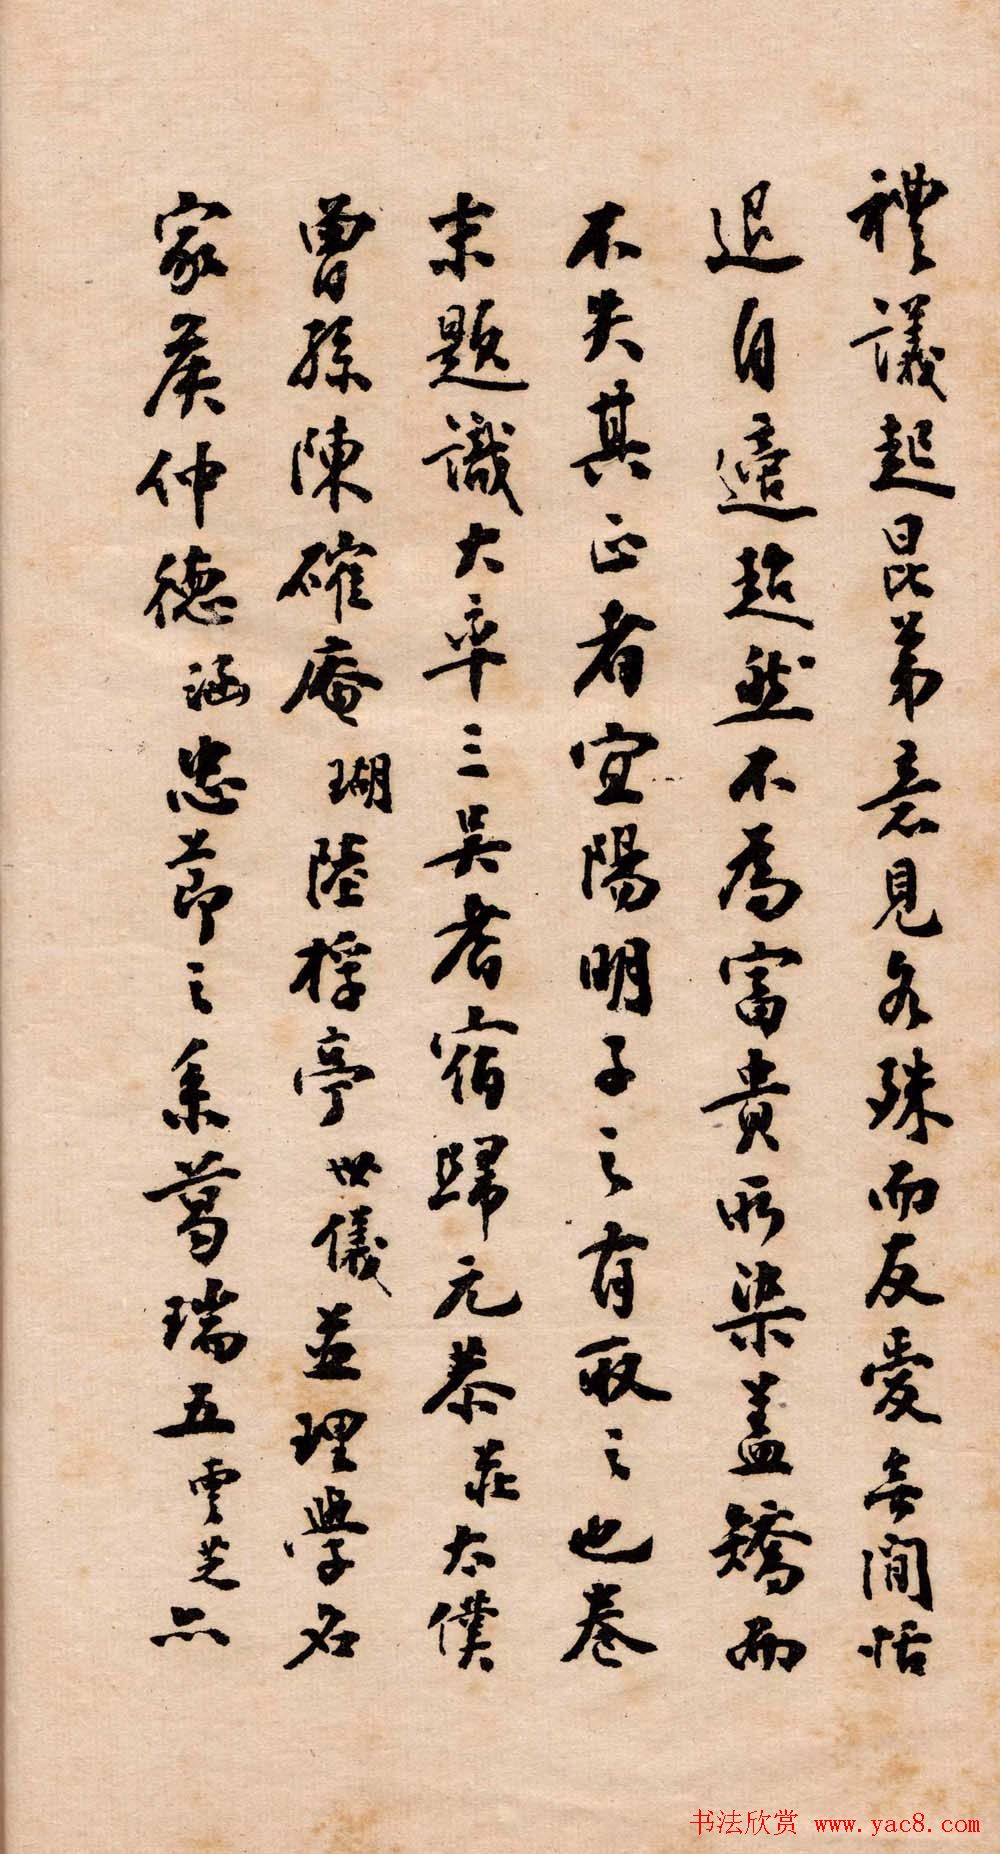 禮議起昆弟意見各殊而友愛無間恬
退自適超然不為富貴所染蓋矯而
不失其正者宜陽明子之有取之也卷
末題識大率三吳耆宿歸元恭莊太僕
曾孫陳確庵瑚陸桴亭世儀並理學名
家侯仲德涵忠節之系葛瑞五雲芝亦
书法欣赏 www.yac8.com